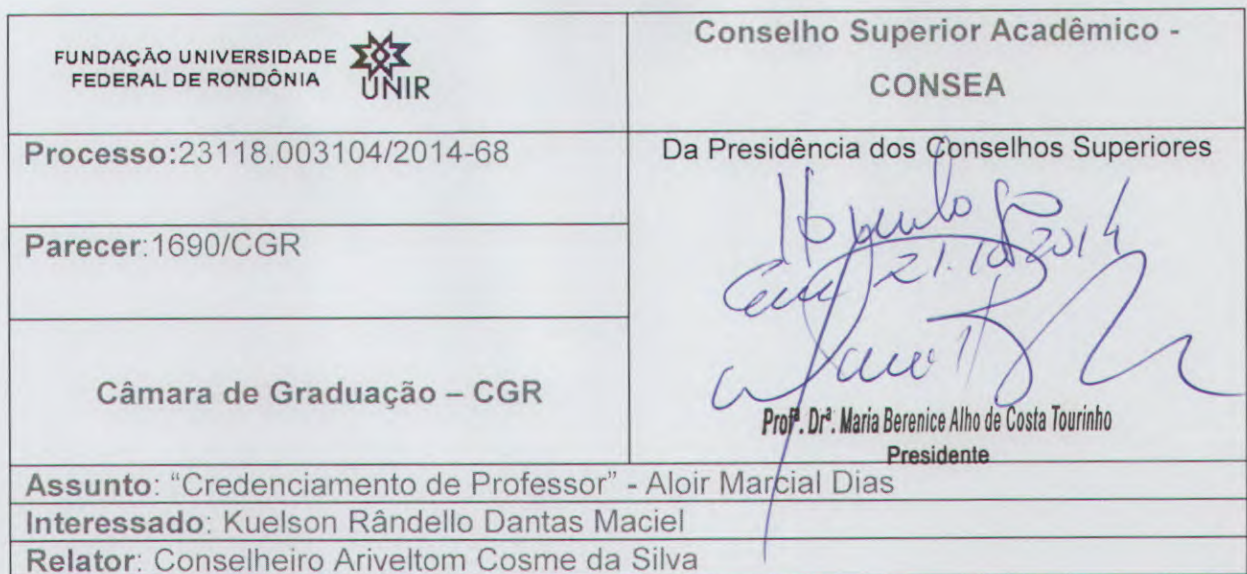 FUNDAÇÃO UNIVERSIDADE
FEDERAL DE RONDÔNIA
UNIR
Conselho Superior Acadêmico -
CONSEA
Processo:23118.003104/2014-68
Da Presidência dos Conselhos Superiores
Parecer:1690/CGR
21.10.2014
Câmara de Graduação – CGR
Profª. Drª. Maria Berenice Alho de Costa Tourinho
Presidente
Assunto: “Credenciamento de Professor” - Aloir Marcial Dias
Interessado: Kuelson Rândello Dantas Maciel
Relator: Conselheiro Ariveltom Cosme da Silva